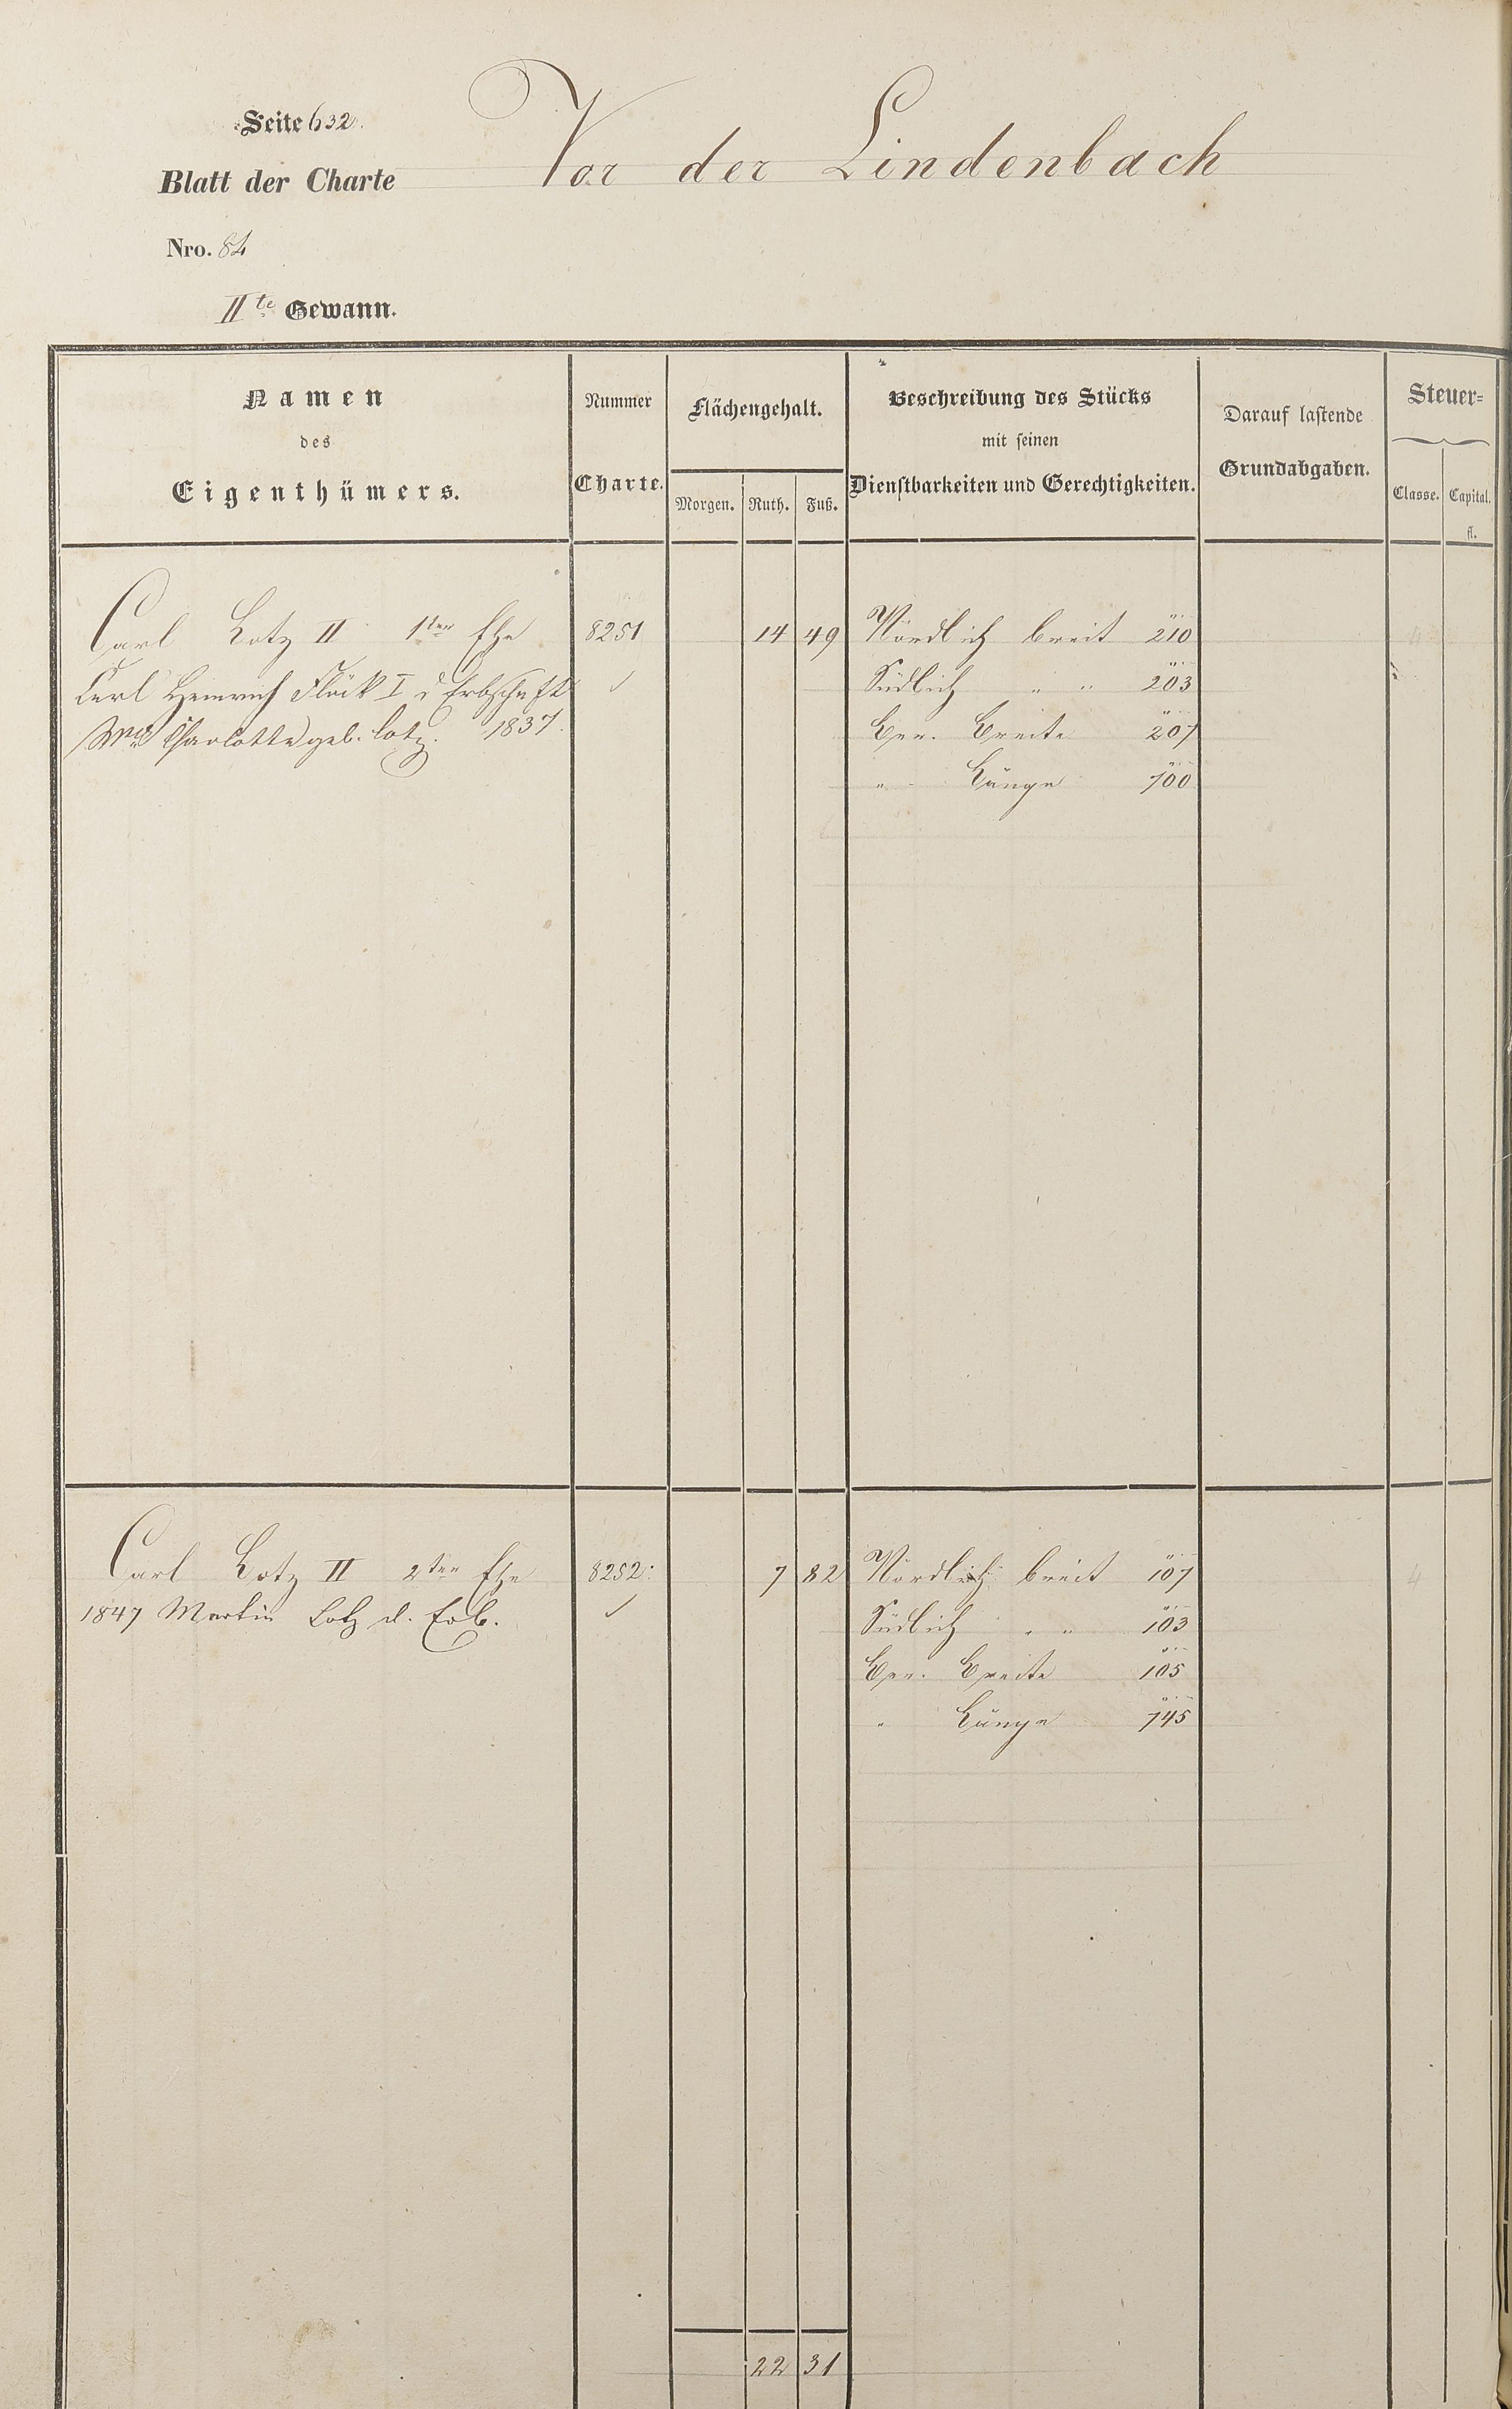 Seite 632.
Vor der Lindenbach
Blatt der Charte
Nro. 84
IIte Gewann.
Namen
des
Eigenthümers.
Nummer
Charte.
Flächengehalt.
Morgen. Ruth. Fuß.
Beschreibung des Stücks
mit seinen
Dienstbarkeiten und Gerechtigkeiten.
Darauf lastende
Grundabgaben.
Steuer=
Classe. Capital.
fl.
Carl Lotz II 1ter Ehe 8251 14 49 Nördlich breit 210
Carl Heinrich Flöck I d Erbschaft Südlich " " 203
Charlotte geb. Lotz. 1837. Ger. Breite 207
" Länge 700
Carl Lotz II 2ter Ehe 8252 7 82 Nördlich breit 107
1847 Martin Lotz d. Erb. Südlich " " 103
Ger. Breite 105
" Länge 745
4
22 31